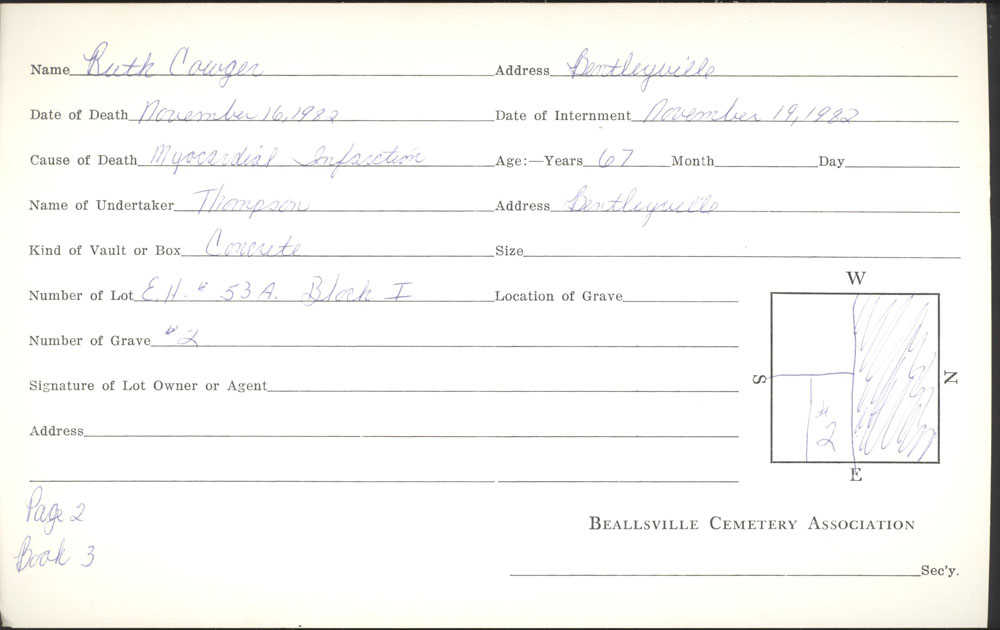 Name Ruth Cowger Address Bentleyville
Date of Death November 16, 1982 Date of Internment November 19, 1982
Cause of Death Myocardial Infarction Age:—Years 67 Month Day
Name of Undertaker Thompson Address Bentleyville
Kind of Vault or Box Concrete Size
Number of Lot E.H. # 53A. Block I Location of Grave
Number of Grave #2
Signature of Lot Owner or Agent
Address
W
S
N
#2
E
Page 2
Book 3
BEALLSVILLE CEMETERY ASSOCIATION
Sec'y.